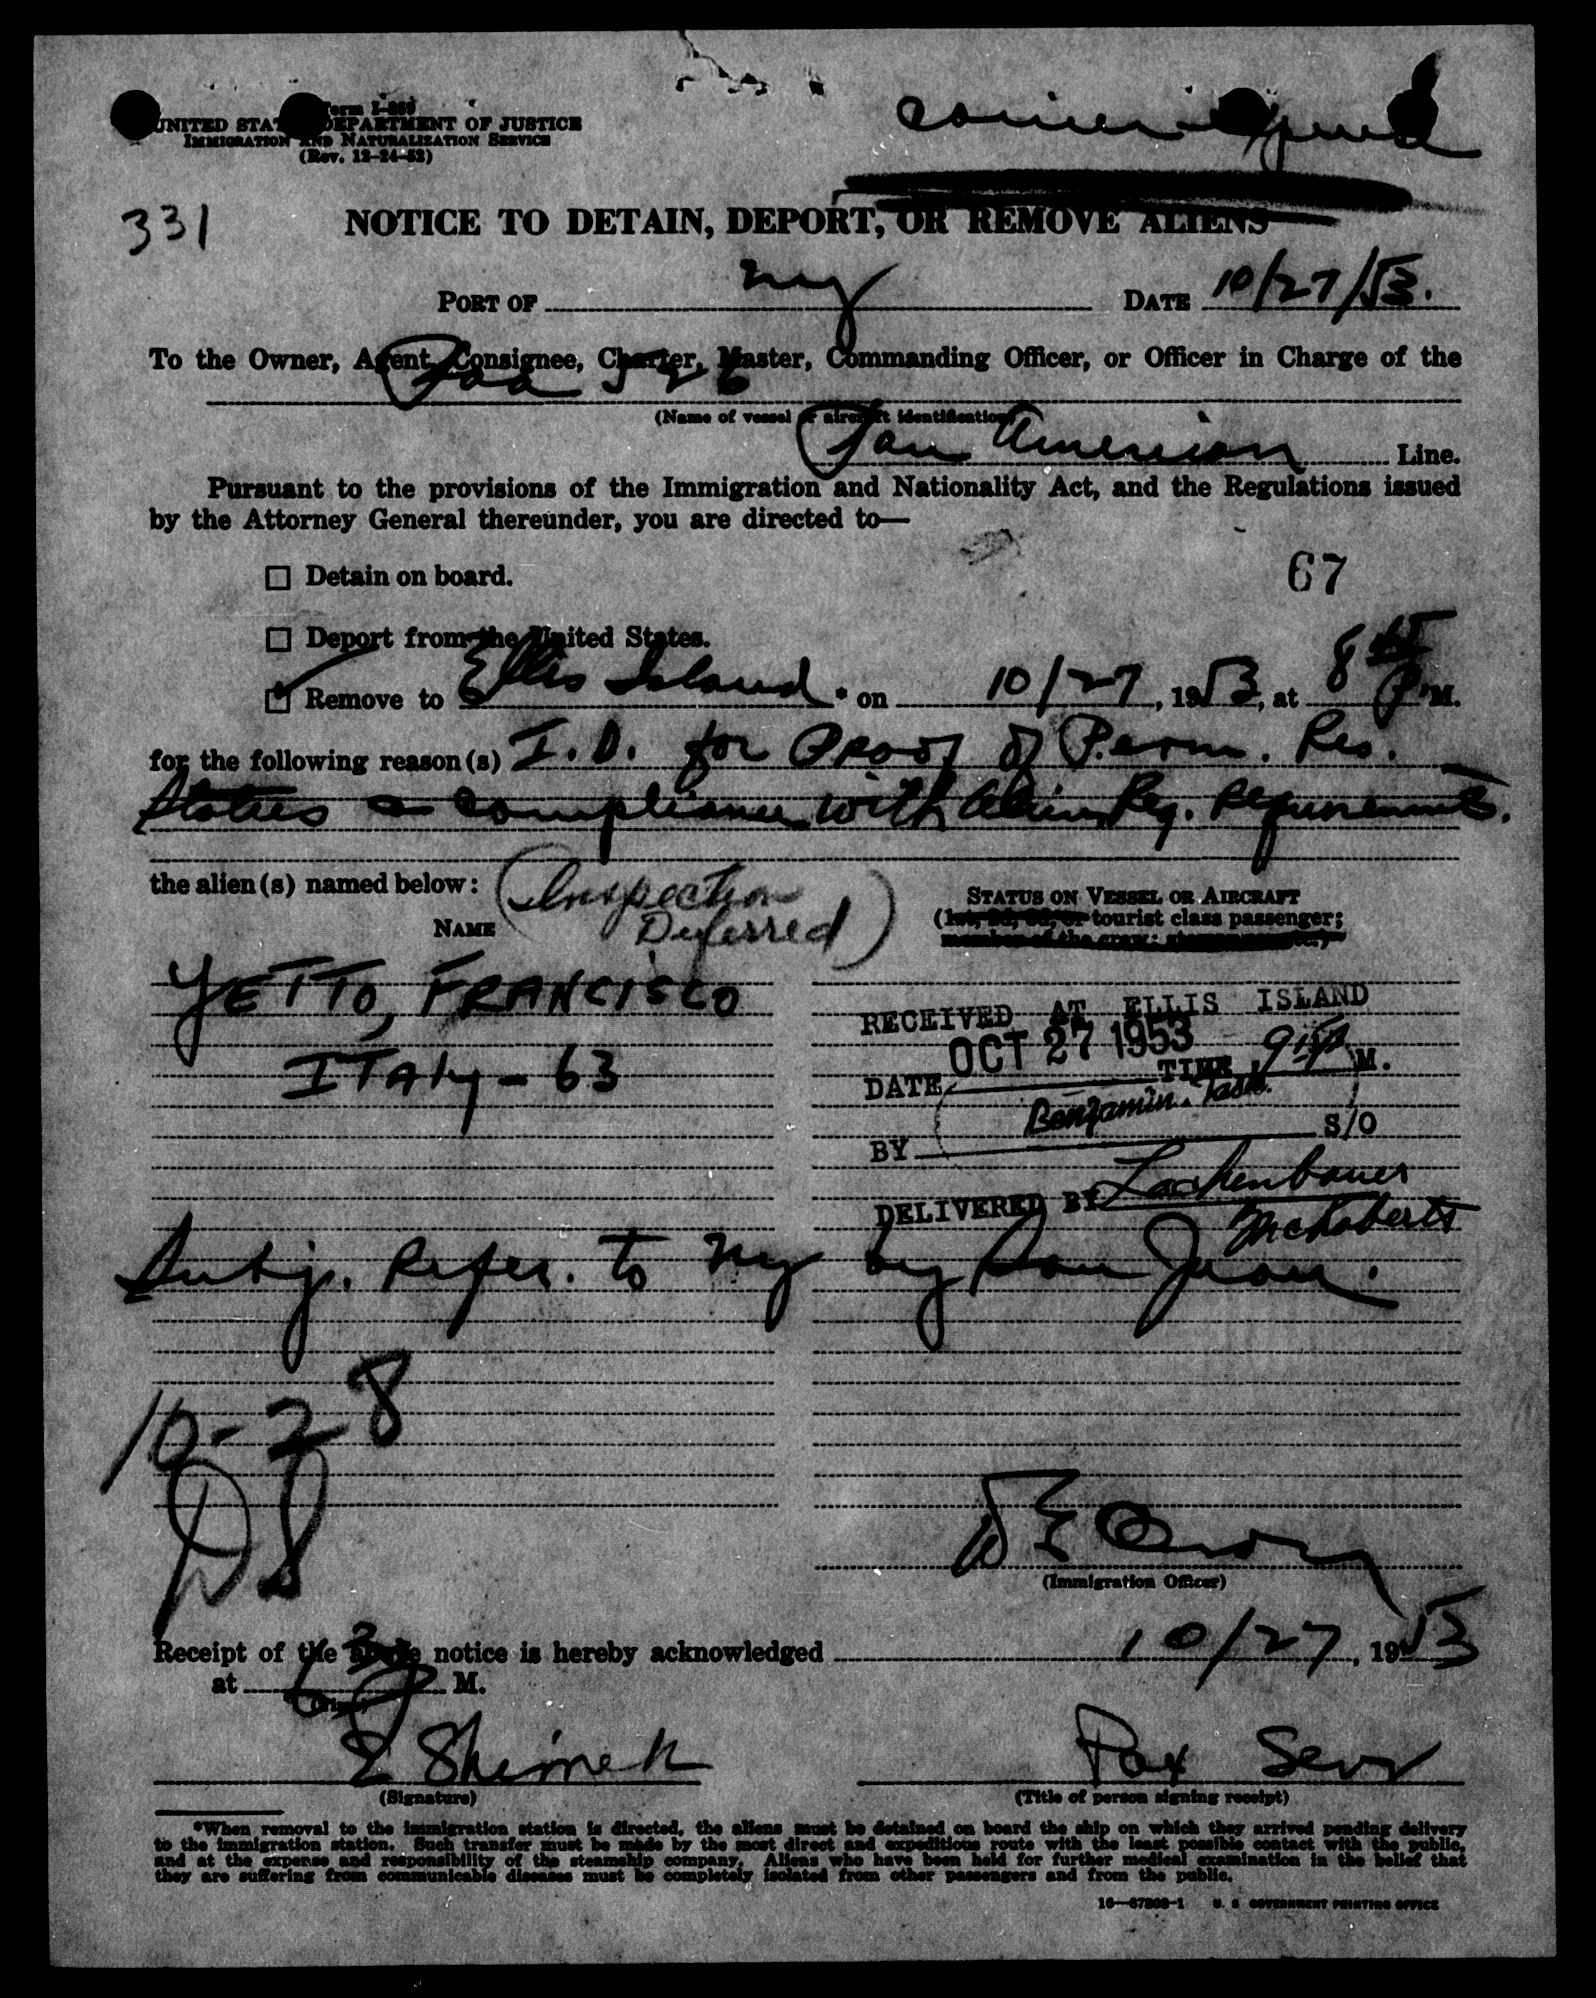 Form I-259
UNITED STATES DEPARTMENT OF JUSTICE
IMMIGRATION AND NATURALIZATION SERVICE
(Rev. 12-24-52)
331
NOTICE TO DETAIN, DEPORT, OR REMOVE ALIENS
PORT OF NY DATE 10/27/53.
To the Owner, Agent, Consignee, Charter, Master, Commanding Officer, or Officer in Charge of the
Paa 526
(Name of vessel or aircraft identification)
Pan American Line.
Pursuant to the provisions of the Immigration and Nationality Act, and the Regulations issued
by the Attorney General thereunder, you are directed to—
☐ Detain on board.
67
☐ Deport from the United States.
☑ Remove to Ellis Island * on 10/27, 1953, at 8 45 P. M.
for the following reason(s) I.D. for Proof of Perm. Res.
Status & compliance with Alien Reg. Requirements.
the alien(s) named below:
(Inspection
Deferred)
NAME
STATUS ON VESSEL OR AIRCRAFT
(1st, 2d, 3d, or tourist class passenger;
member of the crew;
YETTO, FRANCISCO
ITALY - 63
RECEIVED AT ELLIS ISLAND
DATE OCT 27 1953 TIME M.
BY Benjamin S/O
DELIVERED BY Lachenbauer
McRoberts
Subj. Refer. to NY by San Juan.
10-28
(Immigration Officer)
Receipt of the above notice is hereby acknowledged 10/27, 1953
at M.
(Time)
E Sheimek
Pax Serv
(Signature)
(Title of person signing receipt)
*When removal to the immigration station is directed, the aliens must be detained on board the ship on which they arrived pending delivery
to the immigration station. Such transfer must be made by the most direct and expeditious route with the least possible contact with the public,
and at the expense and responsibility of the steamship company. Aliens who have been held for further medical examination in the belief that
they are suffering from communicable diseases must be completely isolated from other passengers and from the public.
16—67308-1 U. S. GOVERNMENT PRINTING OFFICE